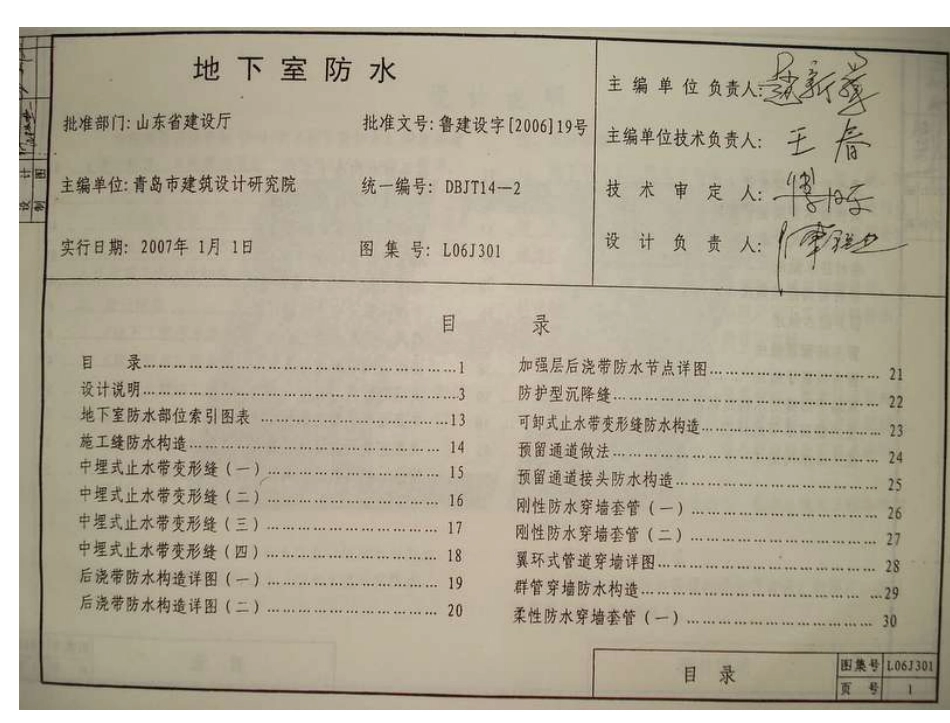 地下室防水
批准部门:山东省建设厅 批准文号:鲁建设字[2006]19号
主编单位:青岛市建筑设计研究院 统一编号: DBJT14—2
实行日期: 2007年 1月 1日 图 集 号: L06J301
主 编 单 位 负责人:
主编单位技术负责人: 王春
技 术 审 定 人:
设 计 负 责 人:
目 录
目 录……………………………………1
设计说明……………………………………3
地下室防水部位索引图表 ……………………13
施工缝防水构造……………………………… 14
中埋式止水带变形缝(一)………………… 15
中埋式止水带变形缝(二)………………… 16
中埋式止水带变形缝(三)………………… 17
中埋式止水带变形缝(四)………………… 18
后浇带防水构造详图(一)………………… 19
后浇带防水构造详图(二)………………… 20
加强层后浇带防水节点详图………………… 21
防护型沉降缝………………………………… 22
可卸式止水带变形缝防水构造……………… 23
预留通道做法………………………………… 24
预留通道接头防水构造……………………… 25
刚性防水穿墙套管(一)…………………… 26
刚性防水穿墙套管(二)…………………… 27
翼环式管道穿墙详图………………………… 28
群管穿墙防水构造……………………………29
柔性防水穿墙套管(一)…………………… 30
目 录
图集号 L06J301
页 号 1
设 计
制 图